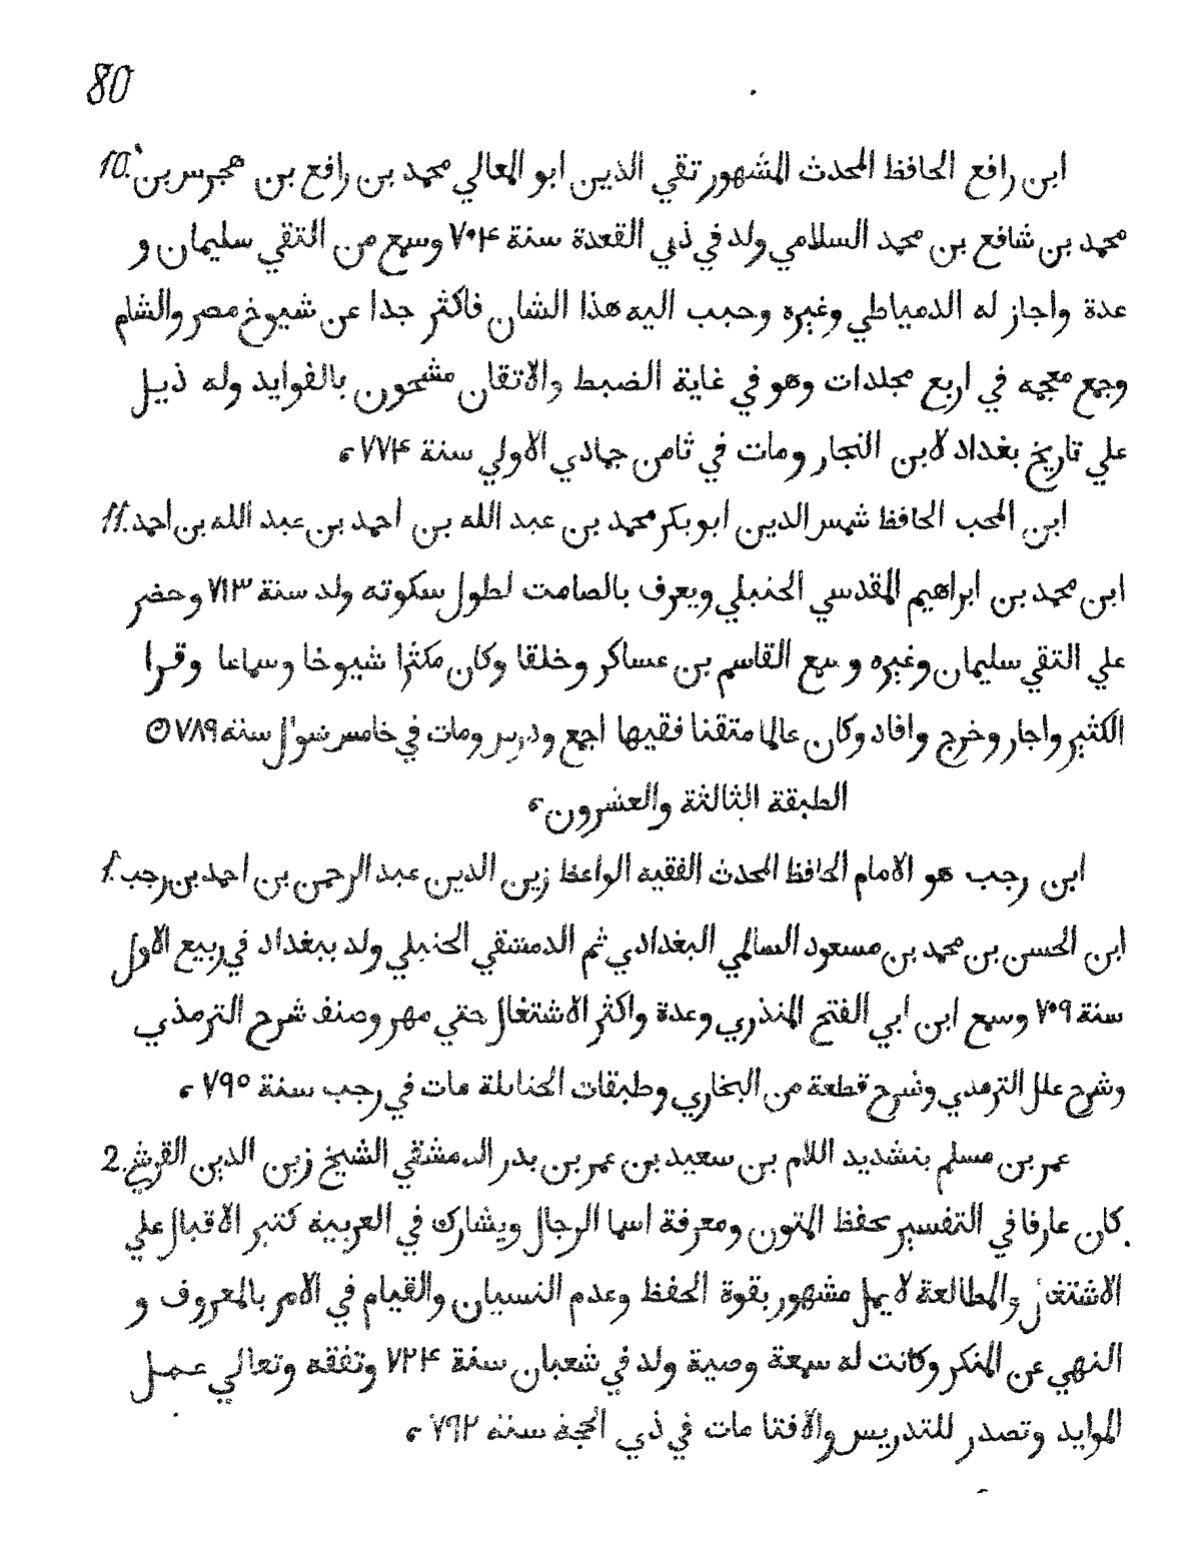 80
ابن رافع الحافظ المحدث المشهور تقي الدين ابو المعالي محمد بن رافع بن هجرس بن 10.
محمد بن شافع بن محمد السلامي ولد في ذي القعدة سنة ٧٠۴ وسمع من التقي سليمان و
عدة واجاز له الدمياطي وغيره وحبب اليه هذا الشان فاكثر جدا عن شيوخ مصر والشام
وجمع معجمه في اربع مجلدات وهو في غاية الضبط والاتقان مشحون بالفوايد وله ذيل
علي تاريخ بغداد لابن النجار ومات في ثامن جمادي الاولي سنة ٧٧۴ ،
ابن المحب الحافظ شمس الدين ابو بكر محمد بن عبد الله بن احمد بن عبد الله بن احمد 11.
ابن محمد بن ابراهيم المقدسي الحنبلي ويعرف بالصامت لطول سكوته ولد سنة ٧١٣ وحضر
علي التقي سليمان وغيره وسمع القاسم بن عساكر وخلقا وكان مكثرا شيوخا وسماعا وقرا
الكثير واجاز وخرج وافاد وكان عالما متقنا فقيها اجمع ودرس ومات في خامس شوال سنة ٧٨٩
الطبقة الثالثة والعشرون ،
ابن رجب هو الامام الحافظ المحدث الفقيه الواعظ زين الدين عبد الرحمن بن احمد بن رجب 1.
ابن الحسن بن محمد بن مسعود السالمي البغدادي ثم الدمشقي الحنبلي ولد ببغداد في ربيع الاول
سنة ٧٠٩ وسمع ابن ابي الفتح المنذري وعدة واكثر الاشتغال حتي مهر وصنف شرح الترمذي
وشرح علل الترمدي وشرح قطعة من البخاري وطبقات الحنابلة مات في رجب سنة ٧٩٥ ،
عمر بن مسلم بتشديد اللام بن سعيد بن عمر بن بدر الدمشقي الشيخ زين الدين القرشي 2.
كان عارفا في التفسير بحفظ المتون ومعرفة اسما الرجال ويشارك في العربية كتير الاقبال علي
الاشتغال والمطالعة لا يمل مشهور بقوة الحفظ وعدم النسيان والقيام في الامر بالمعروف و
النهي عن المنكر وكانت له سمعة وصية ولد في شعبان سنة ٧٢۴ وتفقه وتعالي عمل
المواید وتصدر للتدريس والافتا مات في ذي الحجة سنة ٧٩٢ ،